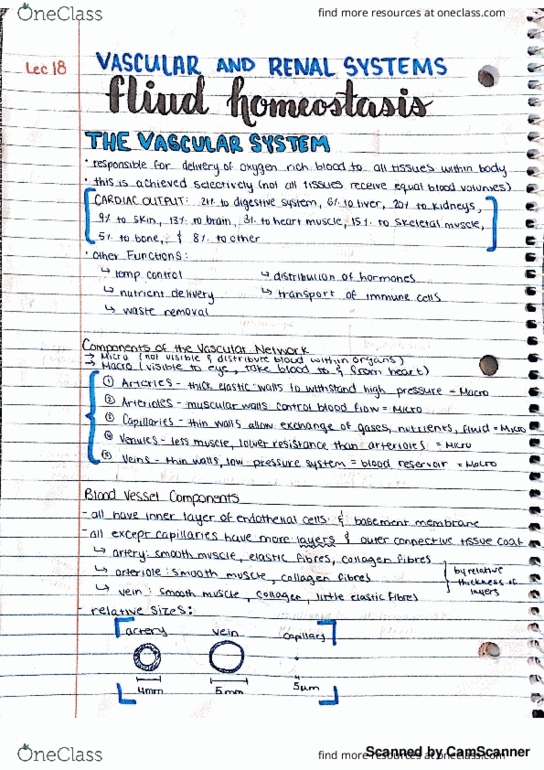 OneClass
find more resources at oneclass.com
Lec 18
VASCULAR AND RENAL SYSTEMS
fliud homeostasis
THE VASCULAR SYSTEM
· responsible for delivery of oxygen rich blood to all tissues within body
· this is achieved selectively (not all tissues receive equal blood volumes)
CARDIAC OUTPUT: 21% to digestive system, 6% to liver, 20% to kidneys,
9% to skin, 13% to brain, 3% to heart muscle, 15% to skeletal muscle,
5% to bone, & 8% to other
· other Functions:
↳ temp control ↳ distribution of hormones
↳ nutrient delivery ↳ transport of immune cells
↳ waste removal
Components of the Vascular Network
→ Micro (not visible & distribute blood within organs)
→ Macro (visible to eye, take blood to & from heart)
① Arteries - thick elastic walls to withstand high pressure = Macro
② Arterioles - muscular walls control blood flow = Micro
③ Capillaries - thin walls allow exchange of gases, nutrients, fluid = Micro
④ Venules - less muscle, lower resistance than arterioles = Micro
⑤ Veins - thin walls, low pressure system = blood reservoir = Macro
Blood Vessel Components
- all have inner layer of endothelial cells & basement membrane
- all except capillaries have more layers & outer connective tissue coat
↳ artery: smooth muscle, elastic fibres, collagen fibres
↳ arteriole: smooth muscle, collagen fibres
↳ vein: smooth muscle, collagen, little elastic fibres
by relative
thickness of
layers
- relative sizes:
artery vein capillary
4mm 5mm 5μm
Scanned by CamScanner
OneClass
find more resources at oneclass.com